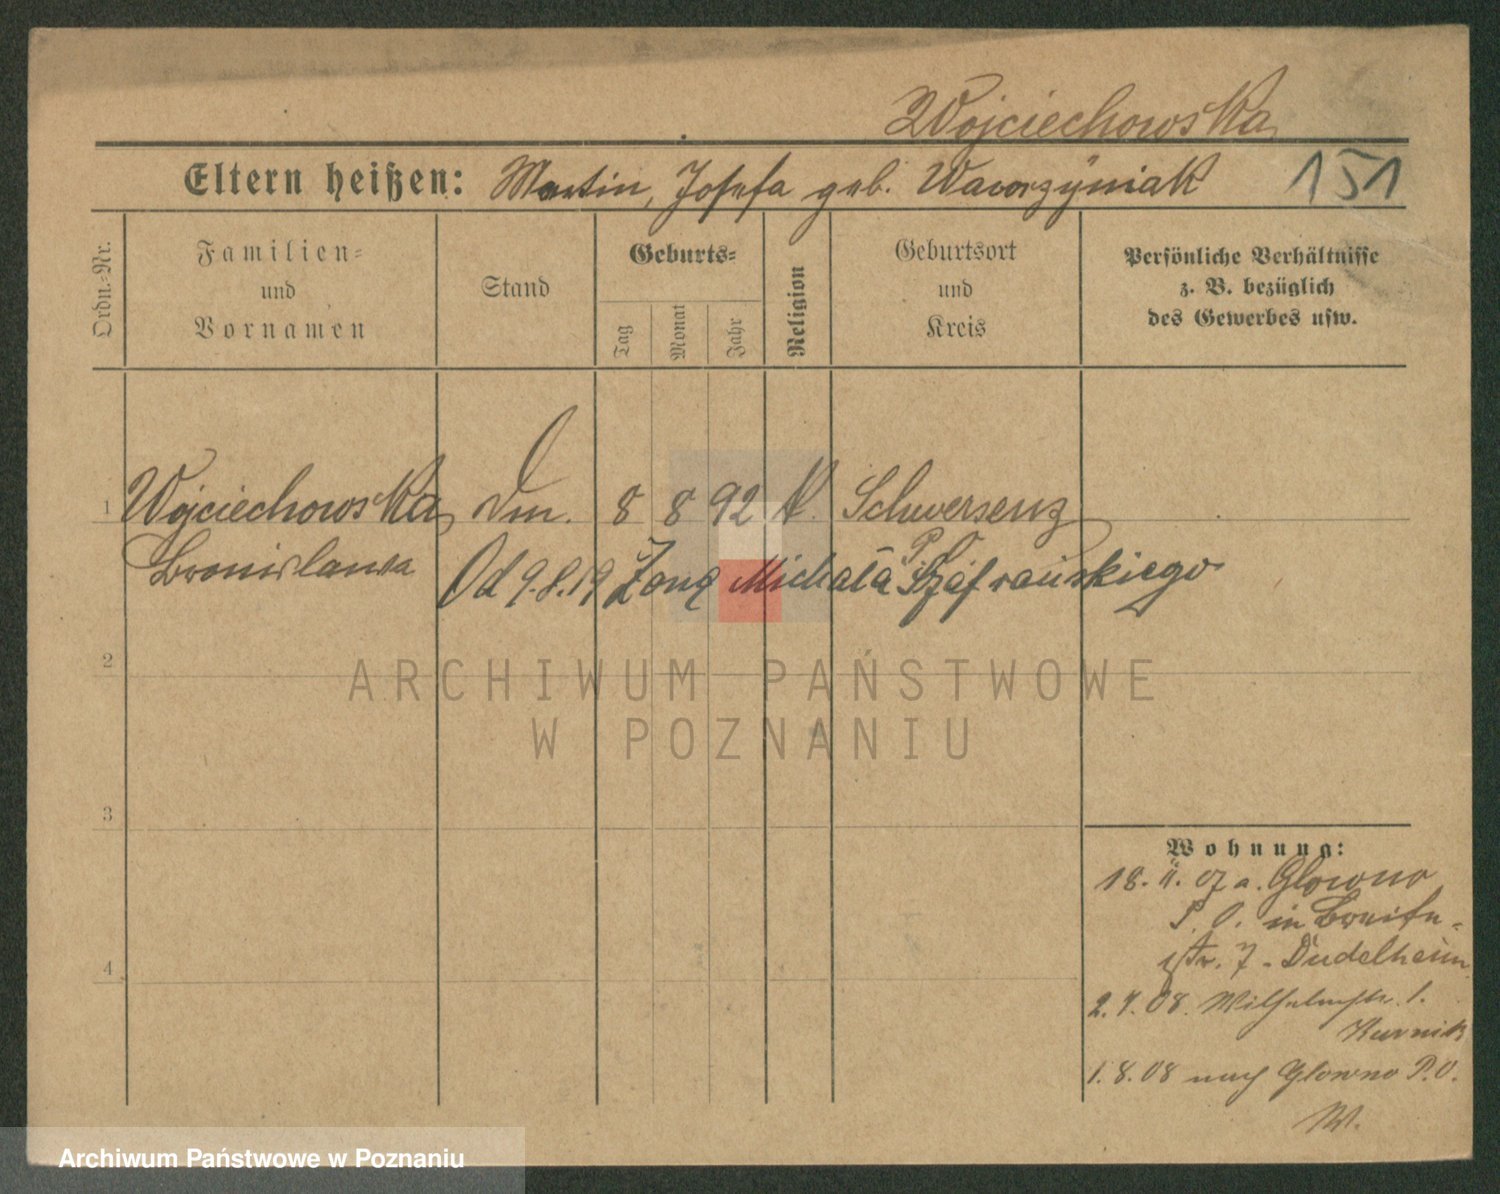 Wojciechowska
Eltern heißen: Martin, Josefa geb. Wawrzyniak 151
Ordn.-Nr.
Familien- und Vornamen
Stand
Geburts-
Tag
Monat
Jahr
Religion
Geburtsort und Kreis
Persönliche Verhältnisse
z. B. bezüglich
des Gewerbes usw.
1 Wojciechowska Dm. 8 8 92 K. Schwersenz
Bronislawa Od 9.8.19 Żona Michała Szafrańskiego
2
3
4
Wohnung:
18. 11. 07 a. Glowno
P. O. in Breite-
str. 7 - Dudelheim
2. 4. 08. Wilhelmstr. 1.
Kurnik
1. 8. 08 nach Glowno P. O.
W.
ARCHIWUM PAŃSTWOWE
W POZNANIU
Archiwum Państwowe w Poznaniu